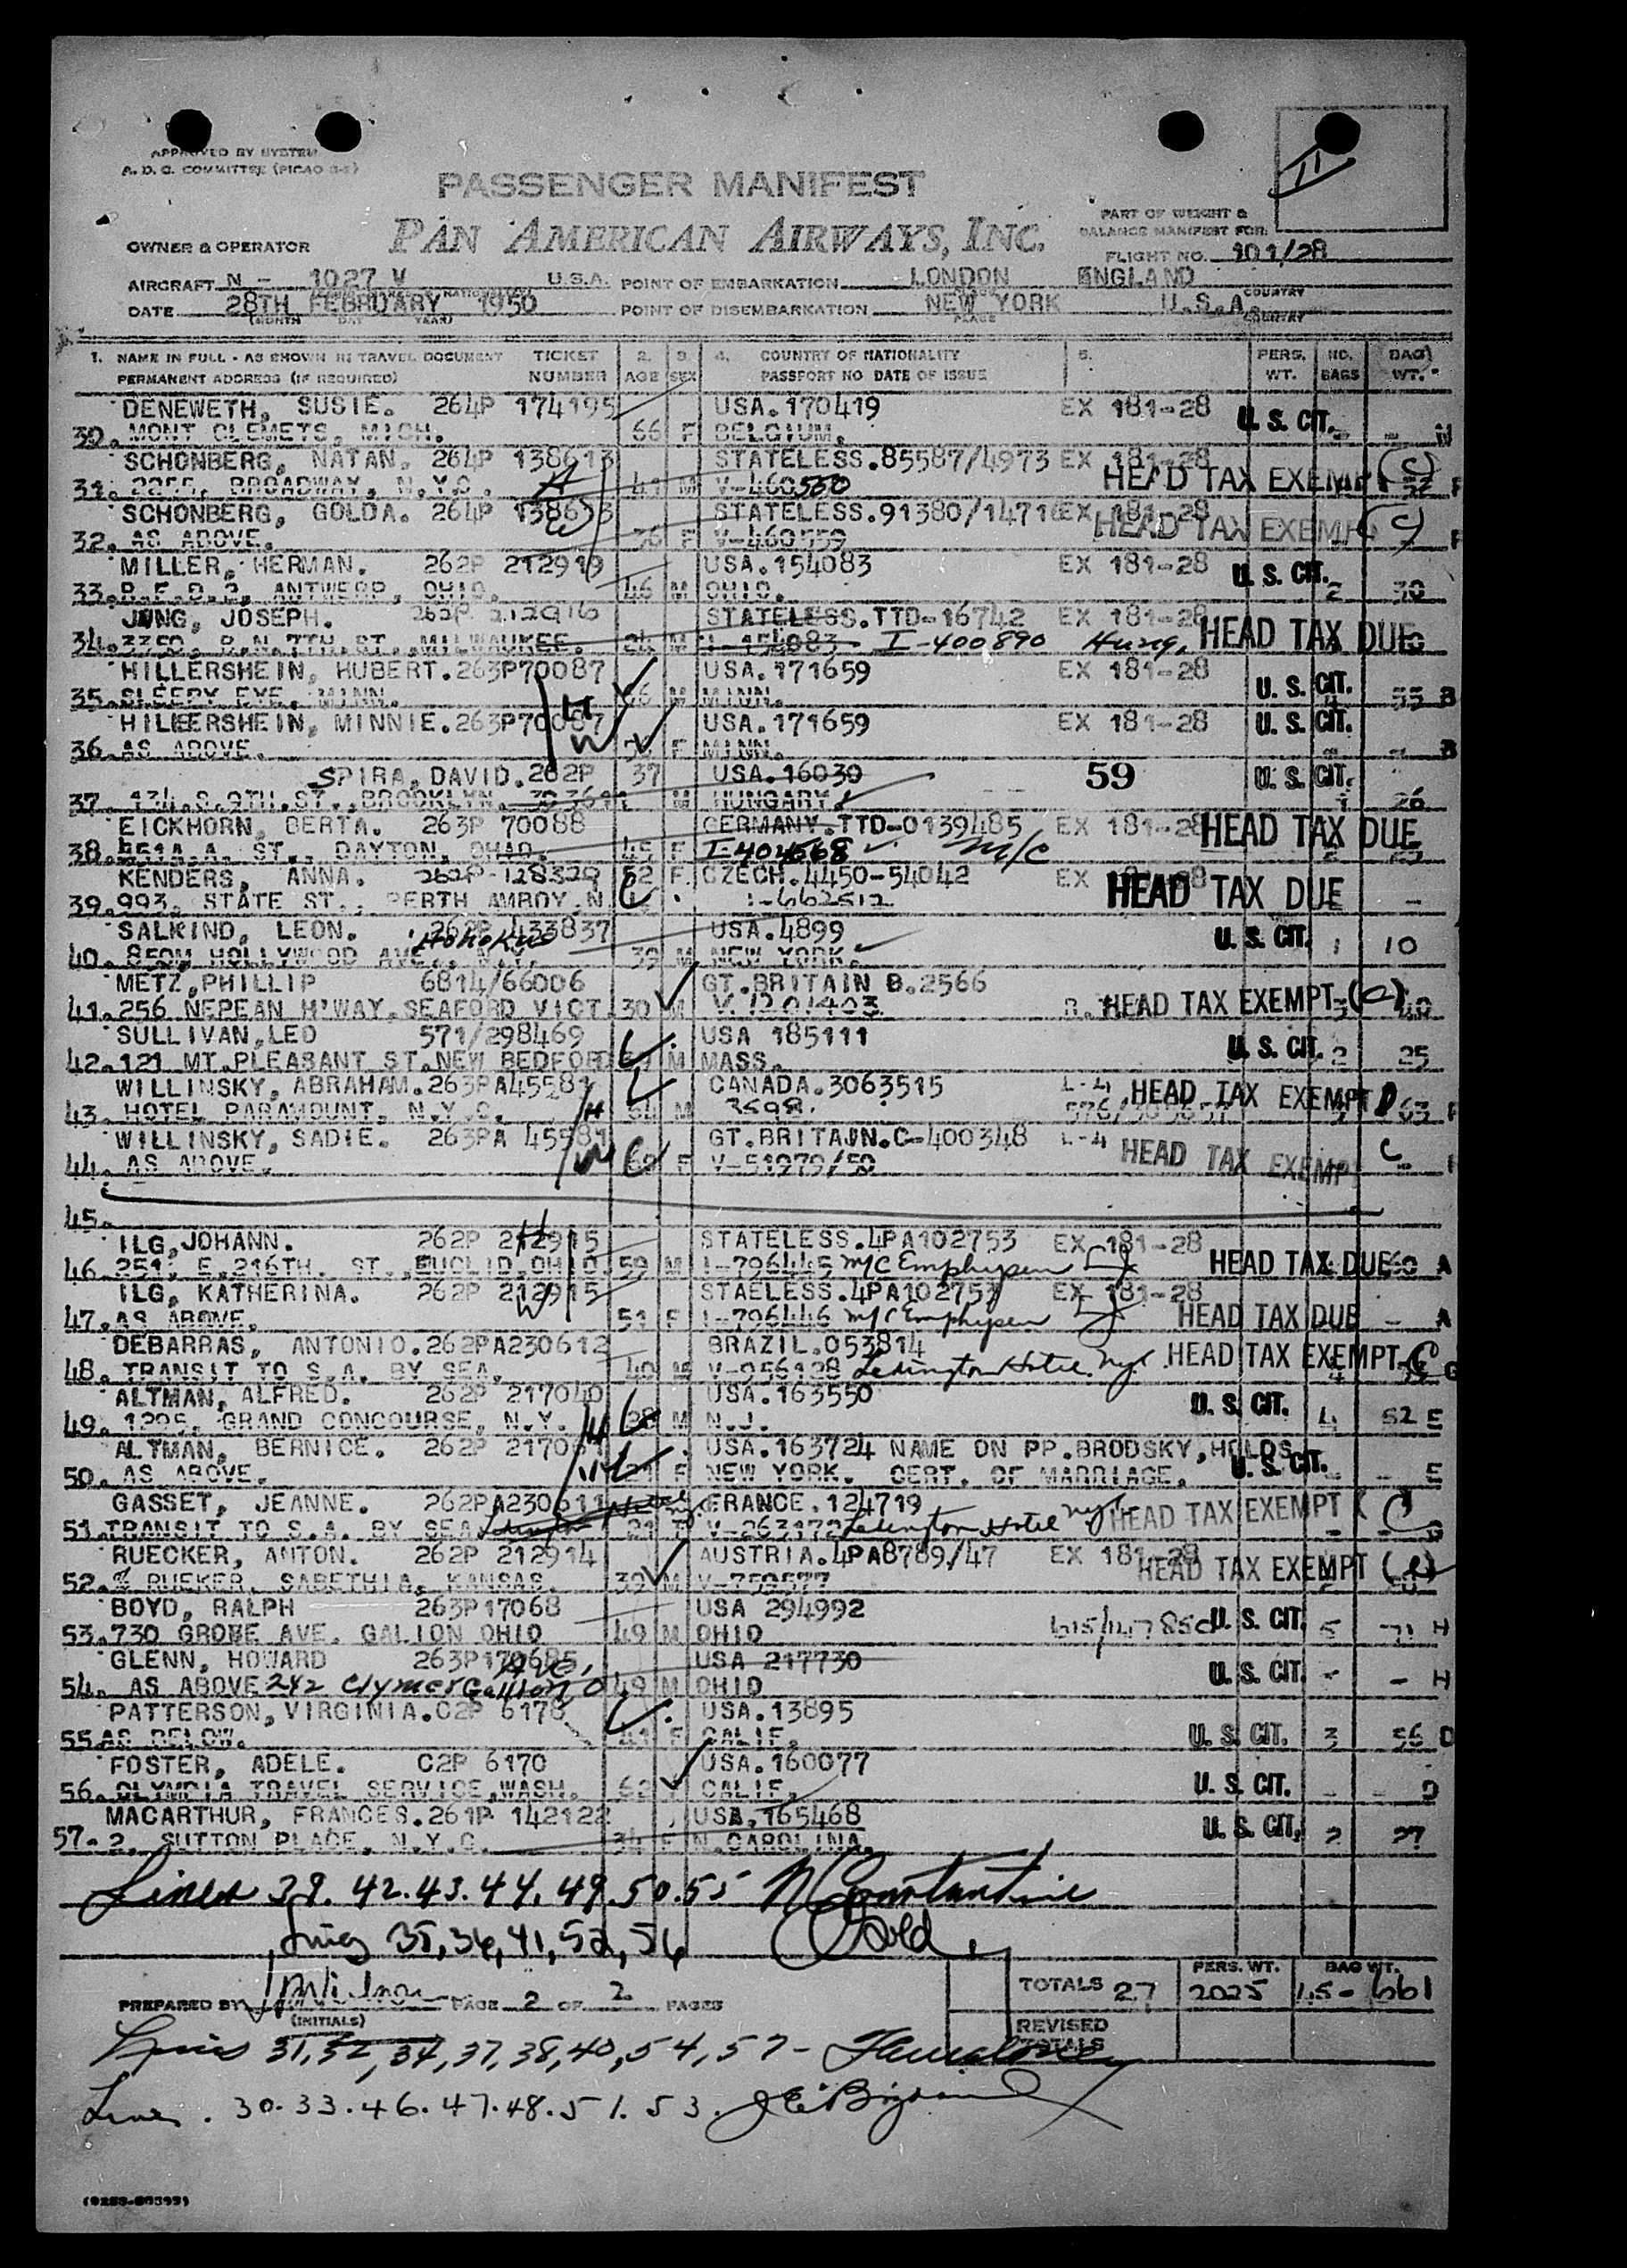 APPROVED BY SYSTEM
A. D. C. COMMITTEE (PICAO
11
PASSENGER MANIFEST
PAN AMERICAN AIRWAYS, INC.
PART OF WEIGHT &
BALANCE MANIFEST FOR:
OWNER & OPERATOR
FLIGHT NO. 101/28
AIRCRAFT N - 1027 V U.S.A. POINT OF EMBARKATION LONDON ENGLAND
DATE 28TH FEBRUARY 1950 POINT OF DISEMBARKATION NEW YORK U.S.A. COUNTRY
(MONTH DAY YEAR) PLACE COUNTRY
1. NAME IN FULL - AS SHOWN IN TRAVEL DOCUMENT TICKET 2. 3. 4. COUNTRY OF NATIONALITY 5. PERS. NO. BAG
PERMANENT ADDRESS (IF REQUIRED) NUMBER AGE SEX PASSPORT NO DATE OF ISSUE WT. BAGS WT.
DENEWETH, SUSIE. 264P 174195 USA.170419 EX 181-28 U. S. CIT.
30. MONT CLEMETS, MICH. 66 F BELGIUM.
SCHONBERG, NATAN. 264P 138613 STATELESS.85587/4973 EX 181-28 HEAD TAX EXEMPT (C)
31. BROADWAY, N.Y.C. H 41 M V-460550
SCHONBERG, GOLDA. 264P STATELESS.91380/ EX 181-28 HEAD TAX EXEMPT (C)
32. AS ABOVE. W 36 F V-460559
MILLER, HERMAN. 262P 212919 USA.154083 EX 181-28 U. S. CIT.
33. R.F.D.2, ANTWERP, OHIO. 46 M OHIO. 2 30
JUNG, JOSEPH. 262P 212916 STATELESS.TTD-16742 EX 181-28 HEAD TAX DUE
34. 3350, B.N.7TH.ST.,MILWAUKEE. 24 M I-154083 I-400890 Hung,
HILLERSHEIN, HUBERT.263P70087 USA.171659 EX 181-28 U. S. CIT.
35. SLEEPY EYE, MINN. 66 M MINN. 55 B
HILLERSHEIN, MINNIE.263P70087 H USA.171659 EX 181-28 U. S. CIT.
36. AS ABOVE. W F MINN. - B
SPIRA, DAVID.262P 37 USA.16030 59 U. S. CIT.
37. 434.S.9TH.ST.,BROOKLYN. M HUNGARY. 1 26
EICKHORN, BERTA. 263P 70088 GERMANY.TTD-0139485 EX 181-28 HEAD TAX DUE
38. A. ST., DAYTON, OHIO. 45 F I-404568 M/C
KENDERS, ANNA. 262P-128329 52 F. CZECH.4450-54042 EX 181-28 HEAD TAX DUE
39. 993, STATE ST., PERTH AMBOY.N. I-662512 -
SALKIND, LEON. 262P 433837 USA.4899 U. S. CIT. 1 10
40. HOLLYWOOD AVE., N.Y. Hohokus 39 M NEW YORK.
METZ,PHILLIP 6814/66006 GT.BRITAIN B.2566
41. 256 NEPEAN H'WAY,SEAFORD VICT 30 M V.1201403 HEAD TAX EXEMPT-(C)
SULLIVAN,LEO 571/298469 USA 185111 U. S. CIT.
42. 121 MT.PLEASANT ST.NEW BEDFORD 39 M MASS. 2 25
WILLINSKY, ABRAHAM.263PA45581 CANADA.3063515 L-4 HEAD TAX EXEMPT
43. HOTEL PARAMOUNT, N.Y.C. H 64 M 3598. 63
WILLINSKY, SADIE. 263PA 45581 GT.BRITAIN.C-400348 L-4 HEAD TAX EXEMPT C
44. AS ABOVE. W F V-51979/50
45.
ILG,JOHANN. 262P 212915 H STATELESS.4PA102753 EX 181-28
46. 251, E.216TH. ST.,EUCLID,OHIO. 59 M I-796445 M/C Emphysem HEAD TAX DUE A
ILG, KATHERINA. 262P 212915 STAELESS.4PA102753 EX 181-28
47. AS ABOVE. W 51 F I-796446 M/C Emphysem HEAD TAX DUE - A
DEBARRAS, ANTONIO.262PA230612 BRAZIL.053814
48. TRANSIT TO S.A. BY SEA. 40 M V-956128 Lexington Hotel. NYC. HEAD TAX EXEMPT-C 4 G
ALTMAN, ALFRED. 262P 217040 USA.163550 U. S. CIT.
49. 1295, GRAND CONCOURSE, N.Y. H 28 M N.J. 4 52 E
ALTMAN, BERNICE. 262P USA.163724 NAME ON PP.BRODSKY,HOLDS U. S. CIT.
50. AS ABOVE. W 21 F NEW YORK. CERT. OF MARRIAGE. - E
GASSET, JEANNE. 262PA230611 FRANCE.124719
51. TRANSIT TO S.A. BY SEA 21 F Lexington Hotel NYC HEAD TAX EXEMPT (C) G
RUECKER, ANTON. 262P 212914 AUSTRIA.4PA8789/47 EX 181-28
52. % RUEKER, SABETHIA, KANSAS. 39 M V-759577 HEAD TAX EXEMPT (C)
BOYD, RALPH 263P17068 USA 294992 U. S. CIT.
53. 730 GROVE AVE. GALION OHIO 49 M OHIO 5 71 H
GLENN, HOWARD 263P170685 USA 217730 U. S. CIT.
54. AS ABOVE 242 Clymer Ave, Gallion, O 49 M OHIO - - H
PATTERSON,VIRGINIA.C2P 6178 USA.13895
55. AS BELOW. 41 F CALIF. U. S. CIT. 3 56 D
FOSTER, ADELE. C2P 6170 USA.160077
56. OLYMPIA TRAVEL SERVICE,WASH. 62 F CALIF. U. S. CIT. - - D
MACARTHUR, FRANCES.261P 142122 USA.165468
57. 2, SUTTON PLACE, N.Y.C. 34 F N.CAROLINA. U. S. CIT. 2 27
Lines 39. 42. 43. 44. 49. 50. 55 N Constantine
Lines 35, 36, 41, 52, 56
PREPARED BY PAGE 2 OF 2 PAGES
(INITIALS)
TOTALS 27 PERS. WT. 2025 BAG WT. 45 - 661
REVISED TOTALS
Lines 31, 32, 34, 37, 38, 40, 54, 57 -
Lines . 30. 33. 46. 47. 48. 51. 53.